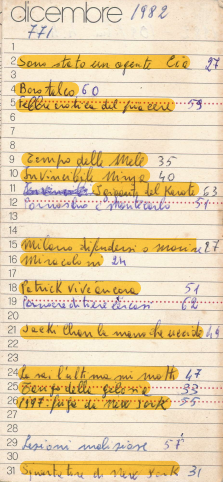 dicembre 1982
771
1
2 Sono stato un agente Cia 27
3
4 Borotalco 60
5 Febbre erotica del piacere 59
6
7
8
9 Tempo delle Mele 35
10 Invincibile Ninja 40
11 I giganti del Karate 63
12 Pornoshow a Montecarlo 51
13
14
15 Milano difendersi o morire 27
16 Miracoloni 24
17
18 Patrick vive ancora 51
19 62
20
21 Jackie Chan la mano che uccide 49
22
23
24 Lo sai l'ultima sui matti 47
25 Dramma della gelosia 32
26 1997 fuga da New York 55
27
28
29 Lezioni maliziose 57
30
31 Squartatore di New York 31